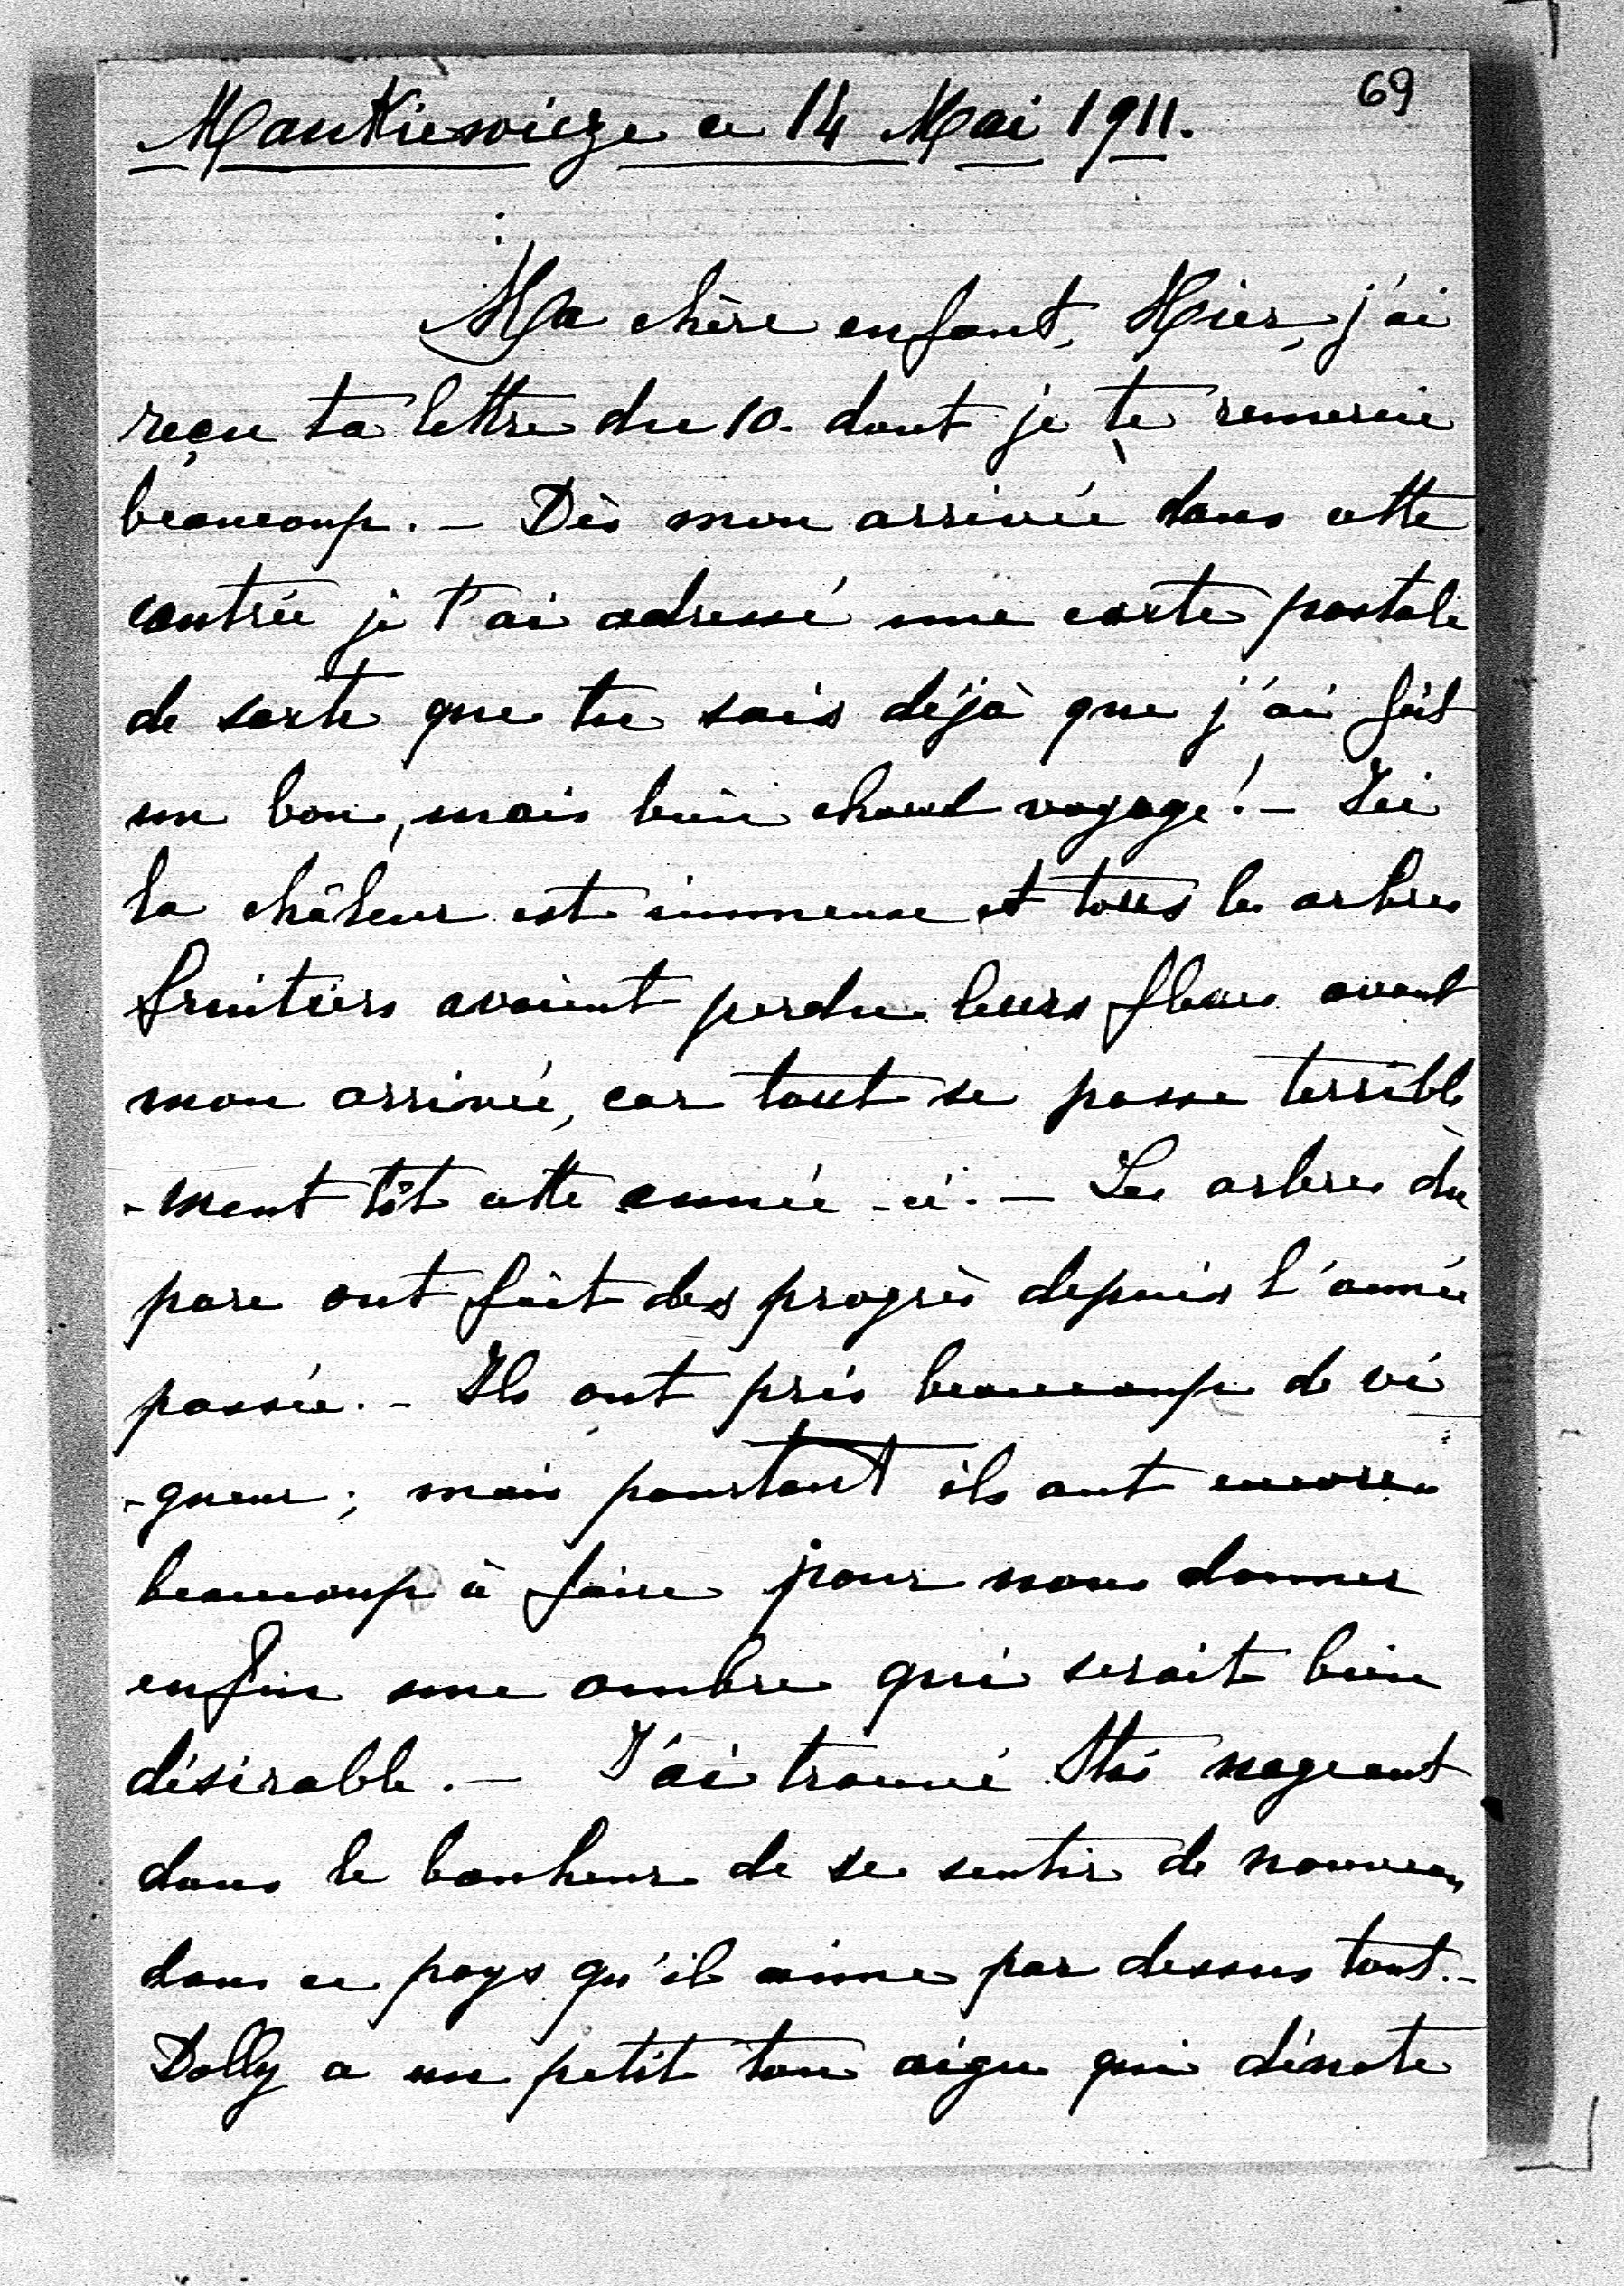 69
Mankiewicze ce 14 Mai 1911.
Ma chère enfant, Hier, j'ai
reçu ta lettre du 10. dont je te remercie
beaucoup. — Dès mon arrivée dans cette
contrée je t'ai adressé une carte postale
de sorte que tu sais déjà que j'ai fait
un bon, mais bien chaud voyage! — Ici
la châleur est immense et tous les arbres
fruitiers avaient perdu leurs fleurs avant
mon arrivée, car tout se passe terrible
-ment tôt cette année-ci. — Les arbres du
parc ont fait des progrès depuis l'année
passée. — Ils ont pris beaucoup de vi
-gueur; mais pourtant ils ont encore
beaucoup à faire pour nous donner
enfin une ombre qui serait bien
désirable. — J'ai trouvé Stas nageant
dans le bonheur de se sentir de nouveau
dans ce pays qu'il aime par dessus tout. —
Dolly a un petit ton aigu qui dénote